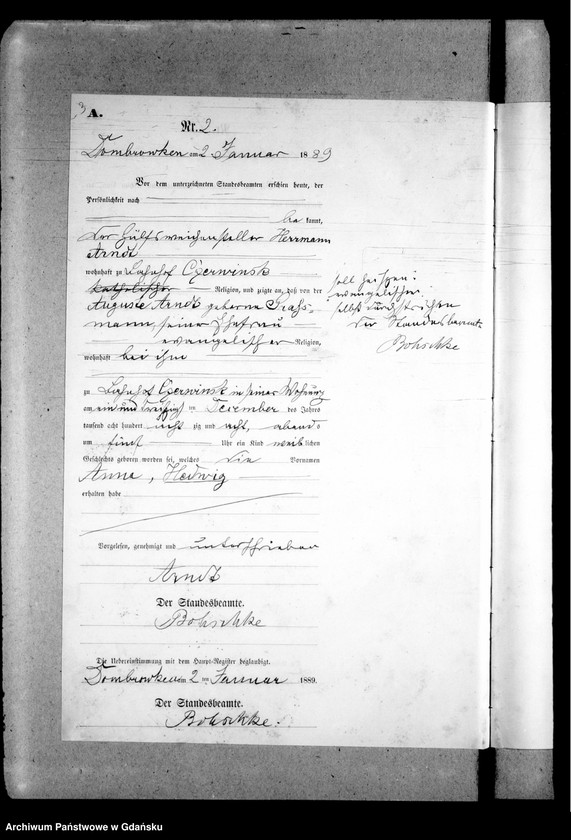 3
A.
Nr. 2.
Dombrowken am 2 Januar 1889
Vor dem unterzeichneten Standesbeamten erschien heute, der
Persönlichkeit nach
be kannt,
der Hülfsweichensteller Herrmann
Arndt
wohnhaft zu Bahnhof Czerwinsk
katholischer Religion, und zeigte an, daß von der
Auguste Arndt geborne Graß-
mann, seiner Ehefrau
evangelischer Religion,
wohnhaft bei ihm
zu Bahnhof Czerwinsk in seiner Wohnung
am ein und dreißigst en Dezember des Jahres
tausend acht hundert acht zig und acht, abends
um fünf Uhr ein Kind weib lichen
Geschlechts geboren worden sei, welches die Vornamen
Anna, Hedwig
erhalten habe
Vorgelesen, genehmigt und unterschrieben
Arndt
Der Standesbeamte.
Bohschke
Die Uebereinstimmung mit dem Haupt-Register beglaubigt.
Dombrowken am 2 ten Januar 1889.
Der Standesbeamte.
Bohschke.
soll heißen:
evangelischer.
selbst durchstrichen
Der Standesbeamte.
Bohschke
Archiwum Państwowe w Gdańsku